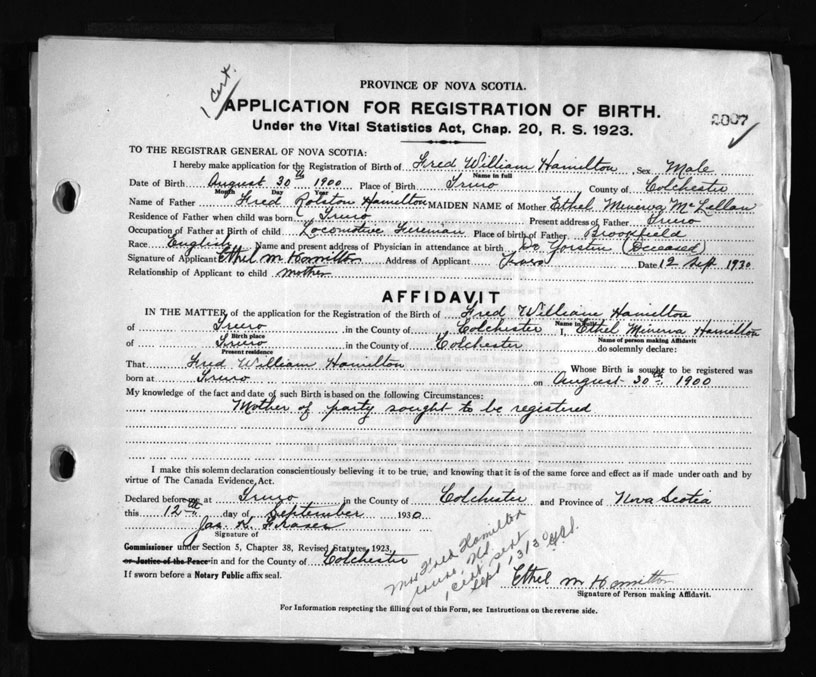 1 Cert.
PROVINCE OF NOVA SCOTIA.
APPLICATION FOR REGISTRATION OF BIRTH.
2007
Under the Vital Statistics Act, Chap. 20, R. S. 1923.
TO THE REGISTRAR GENERAL OF NOVA SCOTIA:
I hereby make application for the Registration of Birth of Fred William Hamilton Sex Male
Name in full
Date of Birth August 30th 1900 Place of Birth Truro County of Colchester
Month Day Year
Name of Father Fred Rolston Hamilton MAIDEN NAME of Mother Ethel Minerva McLellan
Residence of Father when child was born Truro Present address of Father Truro
Occupation of Father at Birth of child Locomotive Fireman Place of birth of Father Brookfield
Race English Name and present address of Physician in attendance at birth Dr Yorston (Deceased)
Signature of Applicant Ethel M Hamilton Address of Applicant Truro Date 12 Sep. 1930
Relationship of Applicant to child Mother
AFFIDAVIT
IN THE MATTER of the application for the Registration of the Birth of Fred William Hamilton
Name in full
of Truro in the County of Colchester I, Ethel Minerva Hamilton
Birth place Name of person making Affidavit
of Truro in the County of Colchester do solemnly declare:
Present residence
That Fred William Hamilton Whose Birth is sought to be registered was
born at Truro on August 30th 1900
My knowledge of the fact and date of such Birth is based on the following Circumstances:
Mother of party sought to be registered
I make this solemn declaration conscientiously believing it to be true, and knowing that it is of the same force and effect as if made under oath and by
virtue of The Canada Evidence Act.
Declared before me at Truro in the County of Colchester and Province of Nova Scotia
this 12th day of September 1930
Jas. Fraser
Signature of
Commissioner under Section 5, Chapter 38, Revised Statutes, 1923,
or Justice of the Peace in and for the County of Colchester
If sworn before a Notary Public affix seal.
Mrs Fred Hamilton
Truro, NS
1 Cert sent
Sept 13/30
Ethel M Hamilton
Signature of Person making Affidavit.
For Information respecting the filling out of this Form, see Instructions on the reverse side.